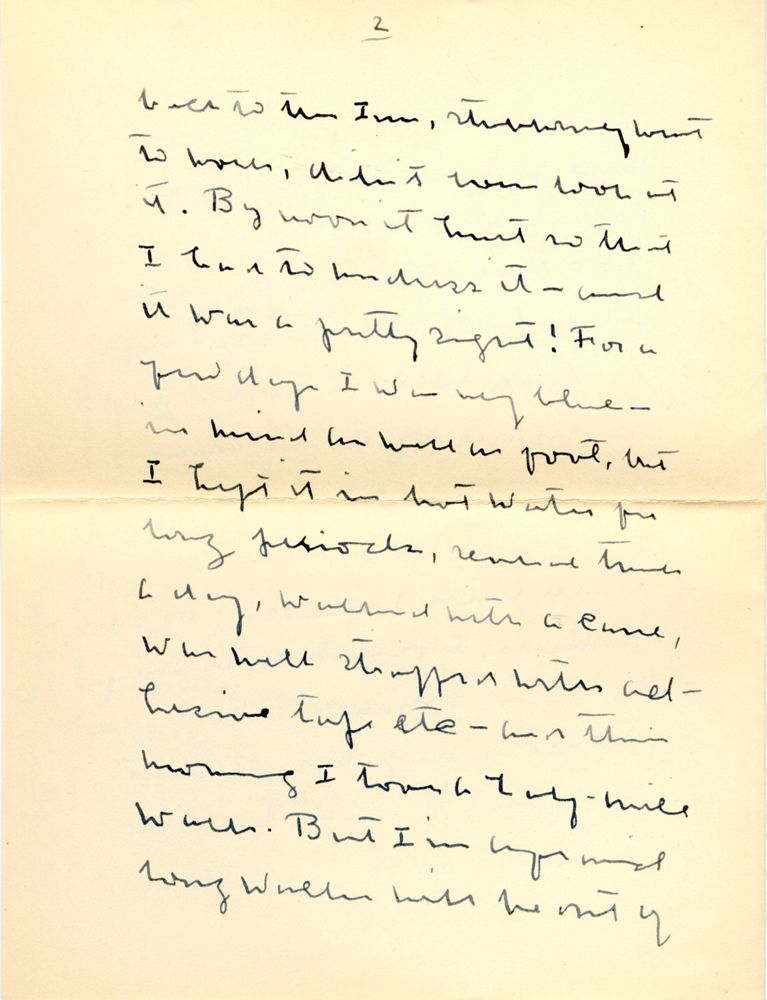 2
back to the Inn, stubbornly went
to work, didn't even look at
it. By noon it hurt so that
I had to undress it – and
it was a pretty sight! For a
few days I was very blue –
in mind as well as foot, but
I kept it in hot water for
long periods, several times
a day, walked with a cane,
was well strapped with ad-
hesive tape etc – and this
morning I took a mile
walk. But I'm afraid
long walks will be out of